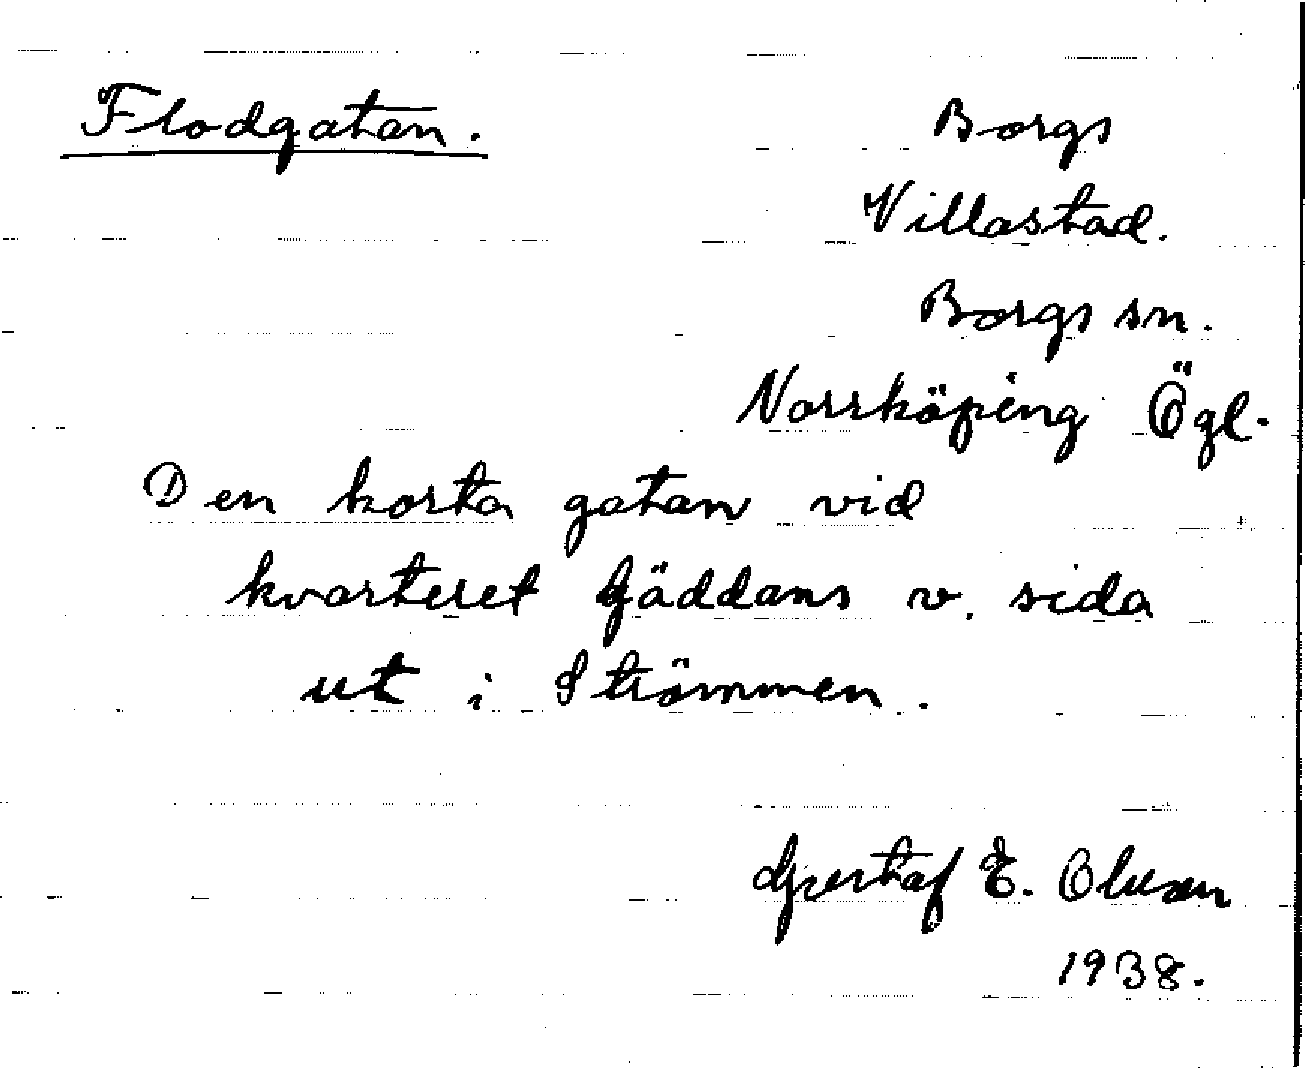 Flodgatan.
Borgs
Villastad.
Borgs sn.
Norrköping Ögl.
Den korta gatan vid
kvarteret Gäddans v. sida
ut i Strömmen.
Gustaf E. Olsson
1938.